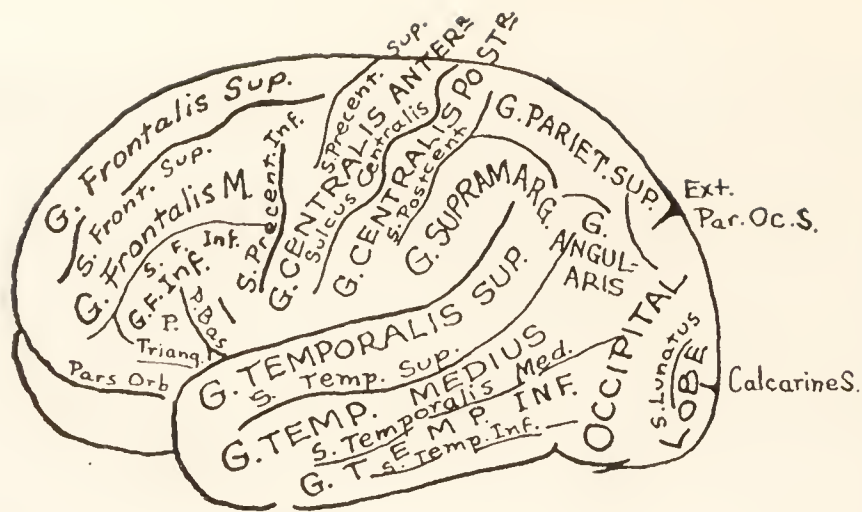 G. Frontalis Sup.
S. Front. Sup.
G. Frontalis M.
S. F. Inf.
G.F. Inf.
P.
Triang.
P. Bas
Pars Orb
S. Precent. Inf.
S. Precent. Sup.
G. CENTRALIS ANTERR
Sulcus Centralis
G. CENTRALIS POSTR.
S. Postcent.
G. PARIET. SUP.
G. SUPRAMARG.
G.
ANGUL-
ARIS
Ext.
Par. Oc. S.
G. TEMPORALIS SUP.
S. Temp. Sup.
G. TEMP. MEDIUS
S. Temporalis Med.
G. TEMP. INF.
S. Temp. Inf.
OCCIPITAL
LOBE
S. Lunatus
Calcarine S.